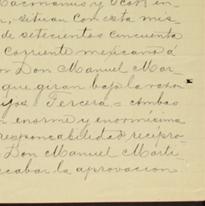 en, sitúan con esta mis
de setecientos cincuenta
corriente mexicano á
Don Manuel Mar-
que giran bajo la razón
Tercera = Ambas
enorme y enormísima
responsabilidad recípro-
Don Manuel Martí
recabar la aprovacion